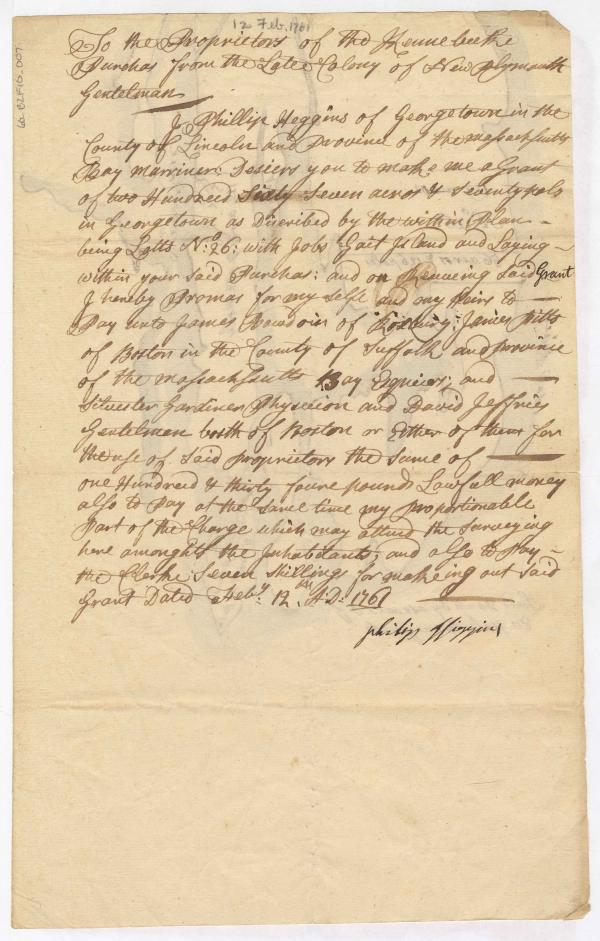 12 Feb. 1761
60.BZF16.007.
To the Proprietors of the Kennebecke
Purchas from the Late Colony of New Plymouth
Gentelman
I Phillip Heggins of Georgetown in the
County of Lincoln and Province of the Massachsutts
Bay marriner: Desiers you to make me a Grant
of two Hundred Sixty Seven acors & Seventy polo
in Georgetown as Discribed by the within Plan -
being Lotts No: 26: with Jobs Gait Island and Laying -
within your Said Purchas: and on Receueing Said Grant
I hereby Promas for my Selfe and my Heirs to
Pay unto James Bowdoin of Roxbury: James Pitts
of Boston in the County of Suffolk and province
of the Massachsutts Bay Esqueiers; and
Silvester Gardiner Physecion and David Jeffries
Gentelman both of Boston or Either of them for
the use of Said proprietors the Sume of
one Hundred & thirty foure pounds Lawfull money
also to Pay at the Same time my Proportionable
Part of the Charge which may attend the Surveying
here amonghts the Inhabitants; and also to Pay -
the Clerke Seven Shillings for makeing out Said
Grant Dated Feby. 12th A:D: 1761
philip Higgins